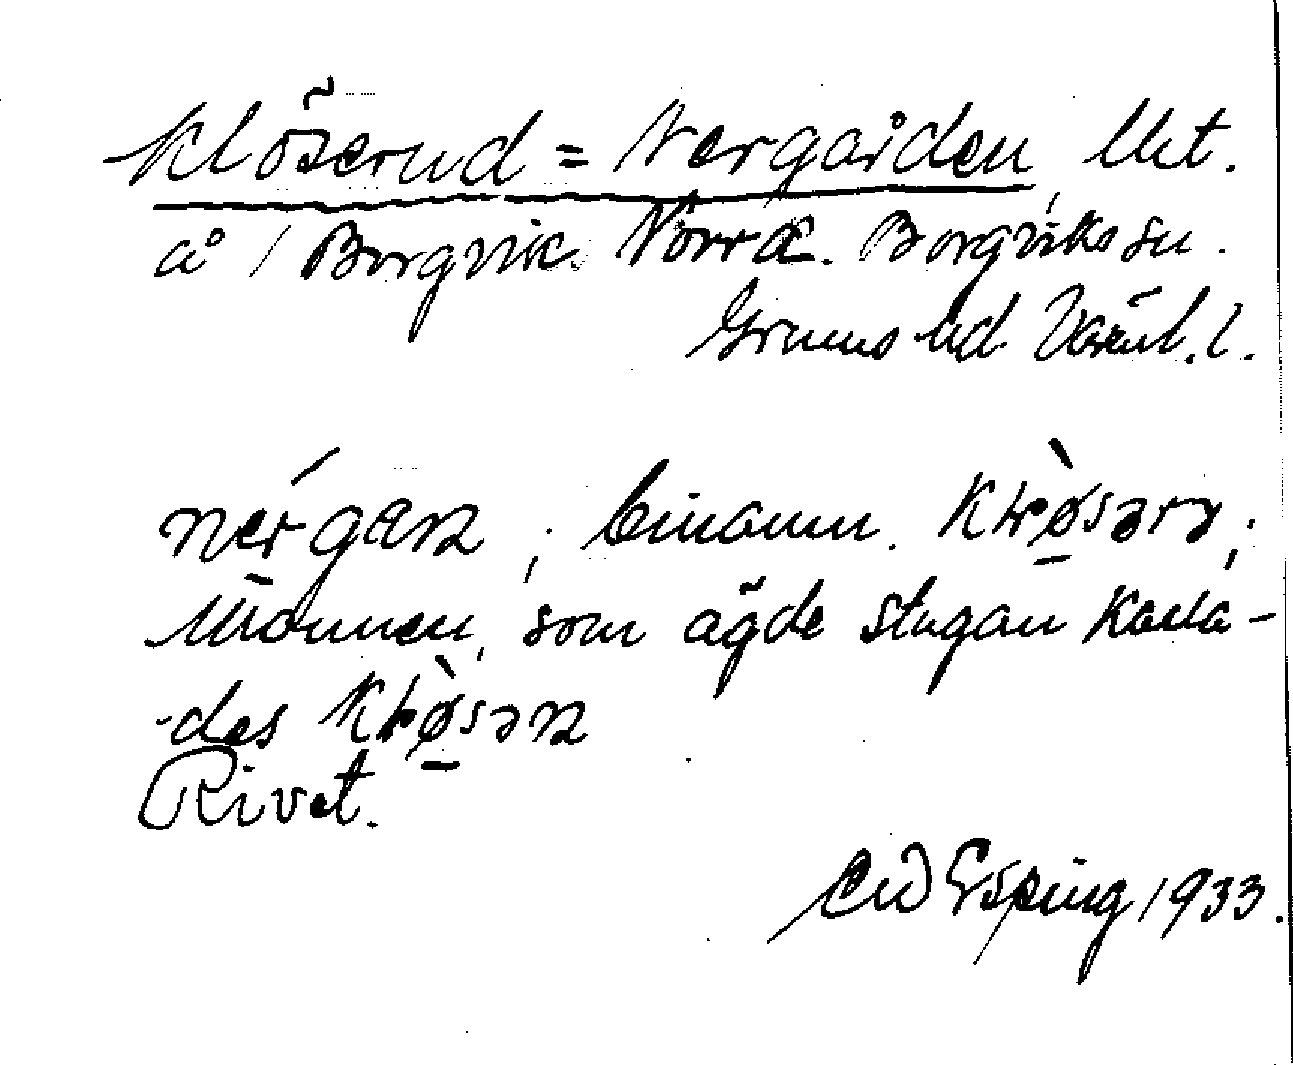 Klöserud = Nergården, lht.
å 1 Borgvik Norra. Borgviks sn.
Grums hd. Värml. l.
nérgaɳ, binamn. Kɽø̀sərɤ;
Mannen, som ägde stugan kalla-
-des Kɽø̀səɳ
Rivet.
Eid Esping 1933.